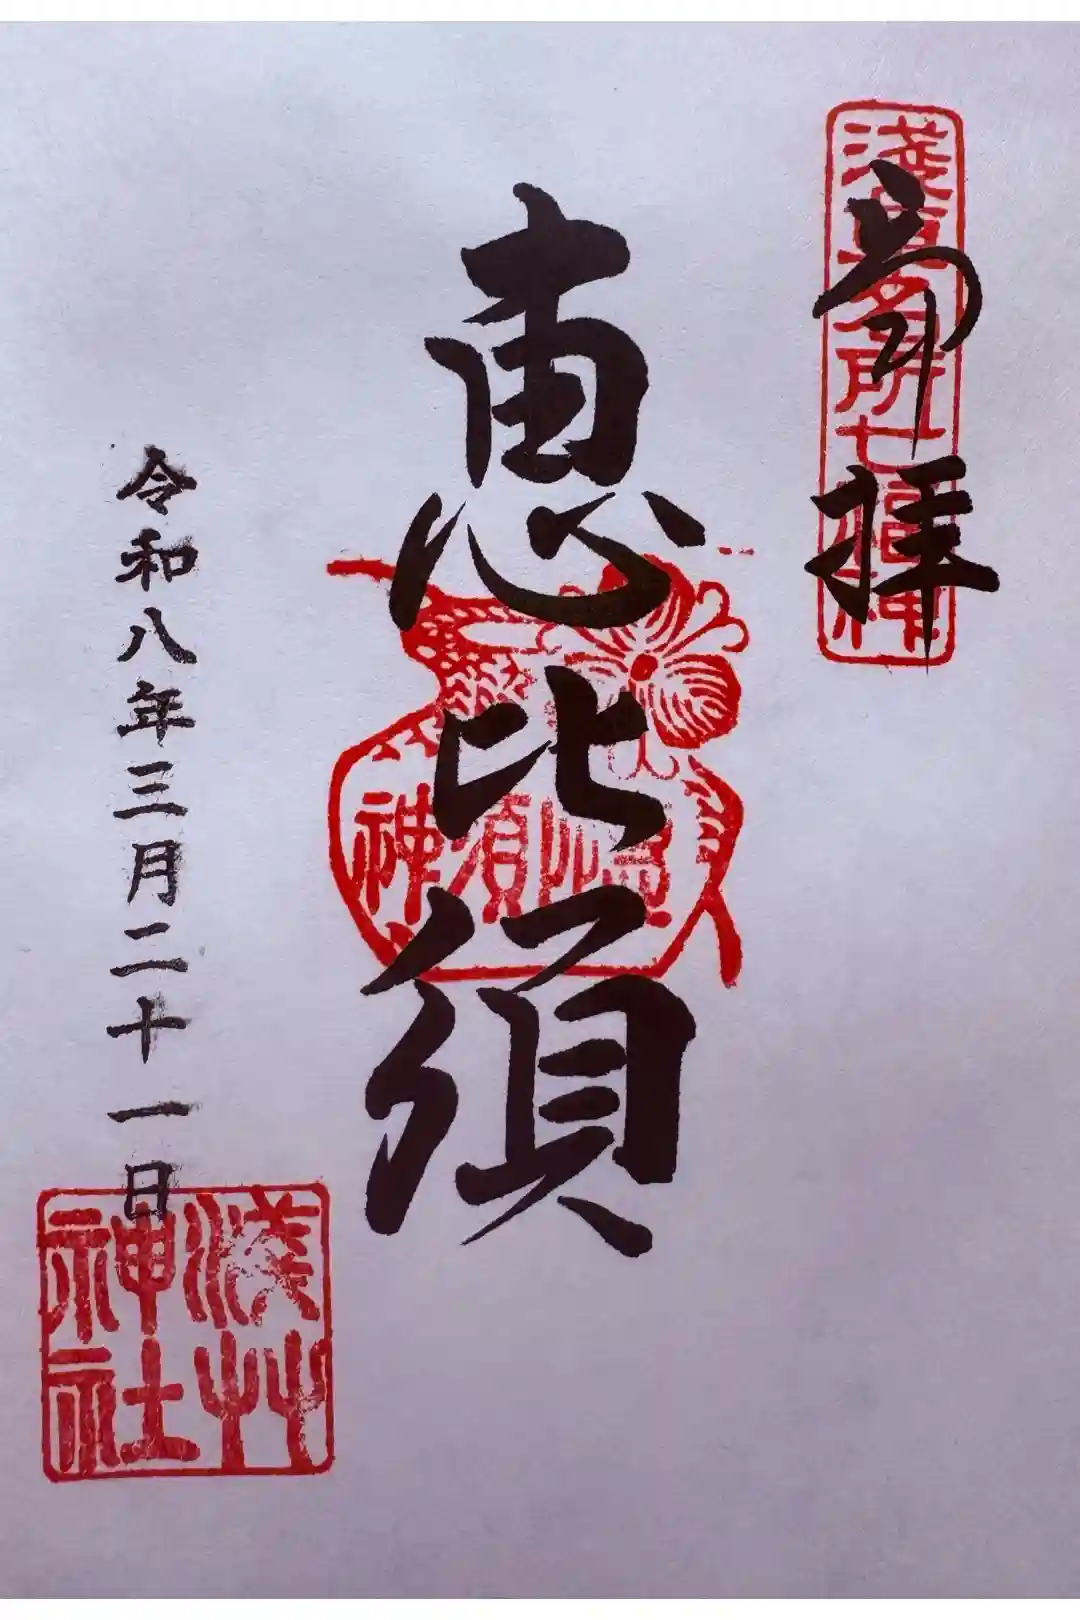 奉拝
淺草名所七福神
恵比須
恵比須神
令和八年三月二十一日
淺草神社